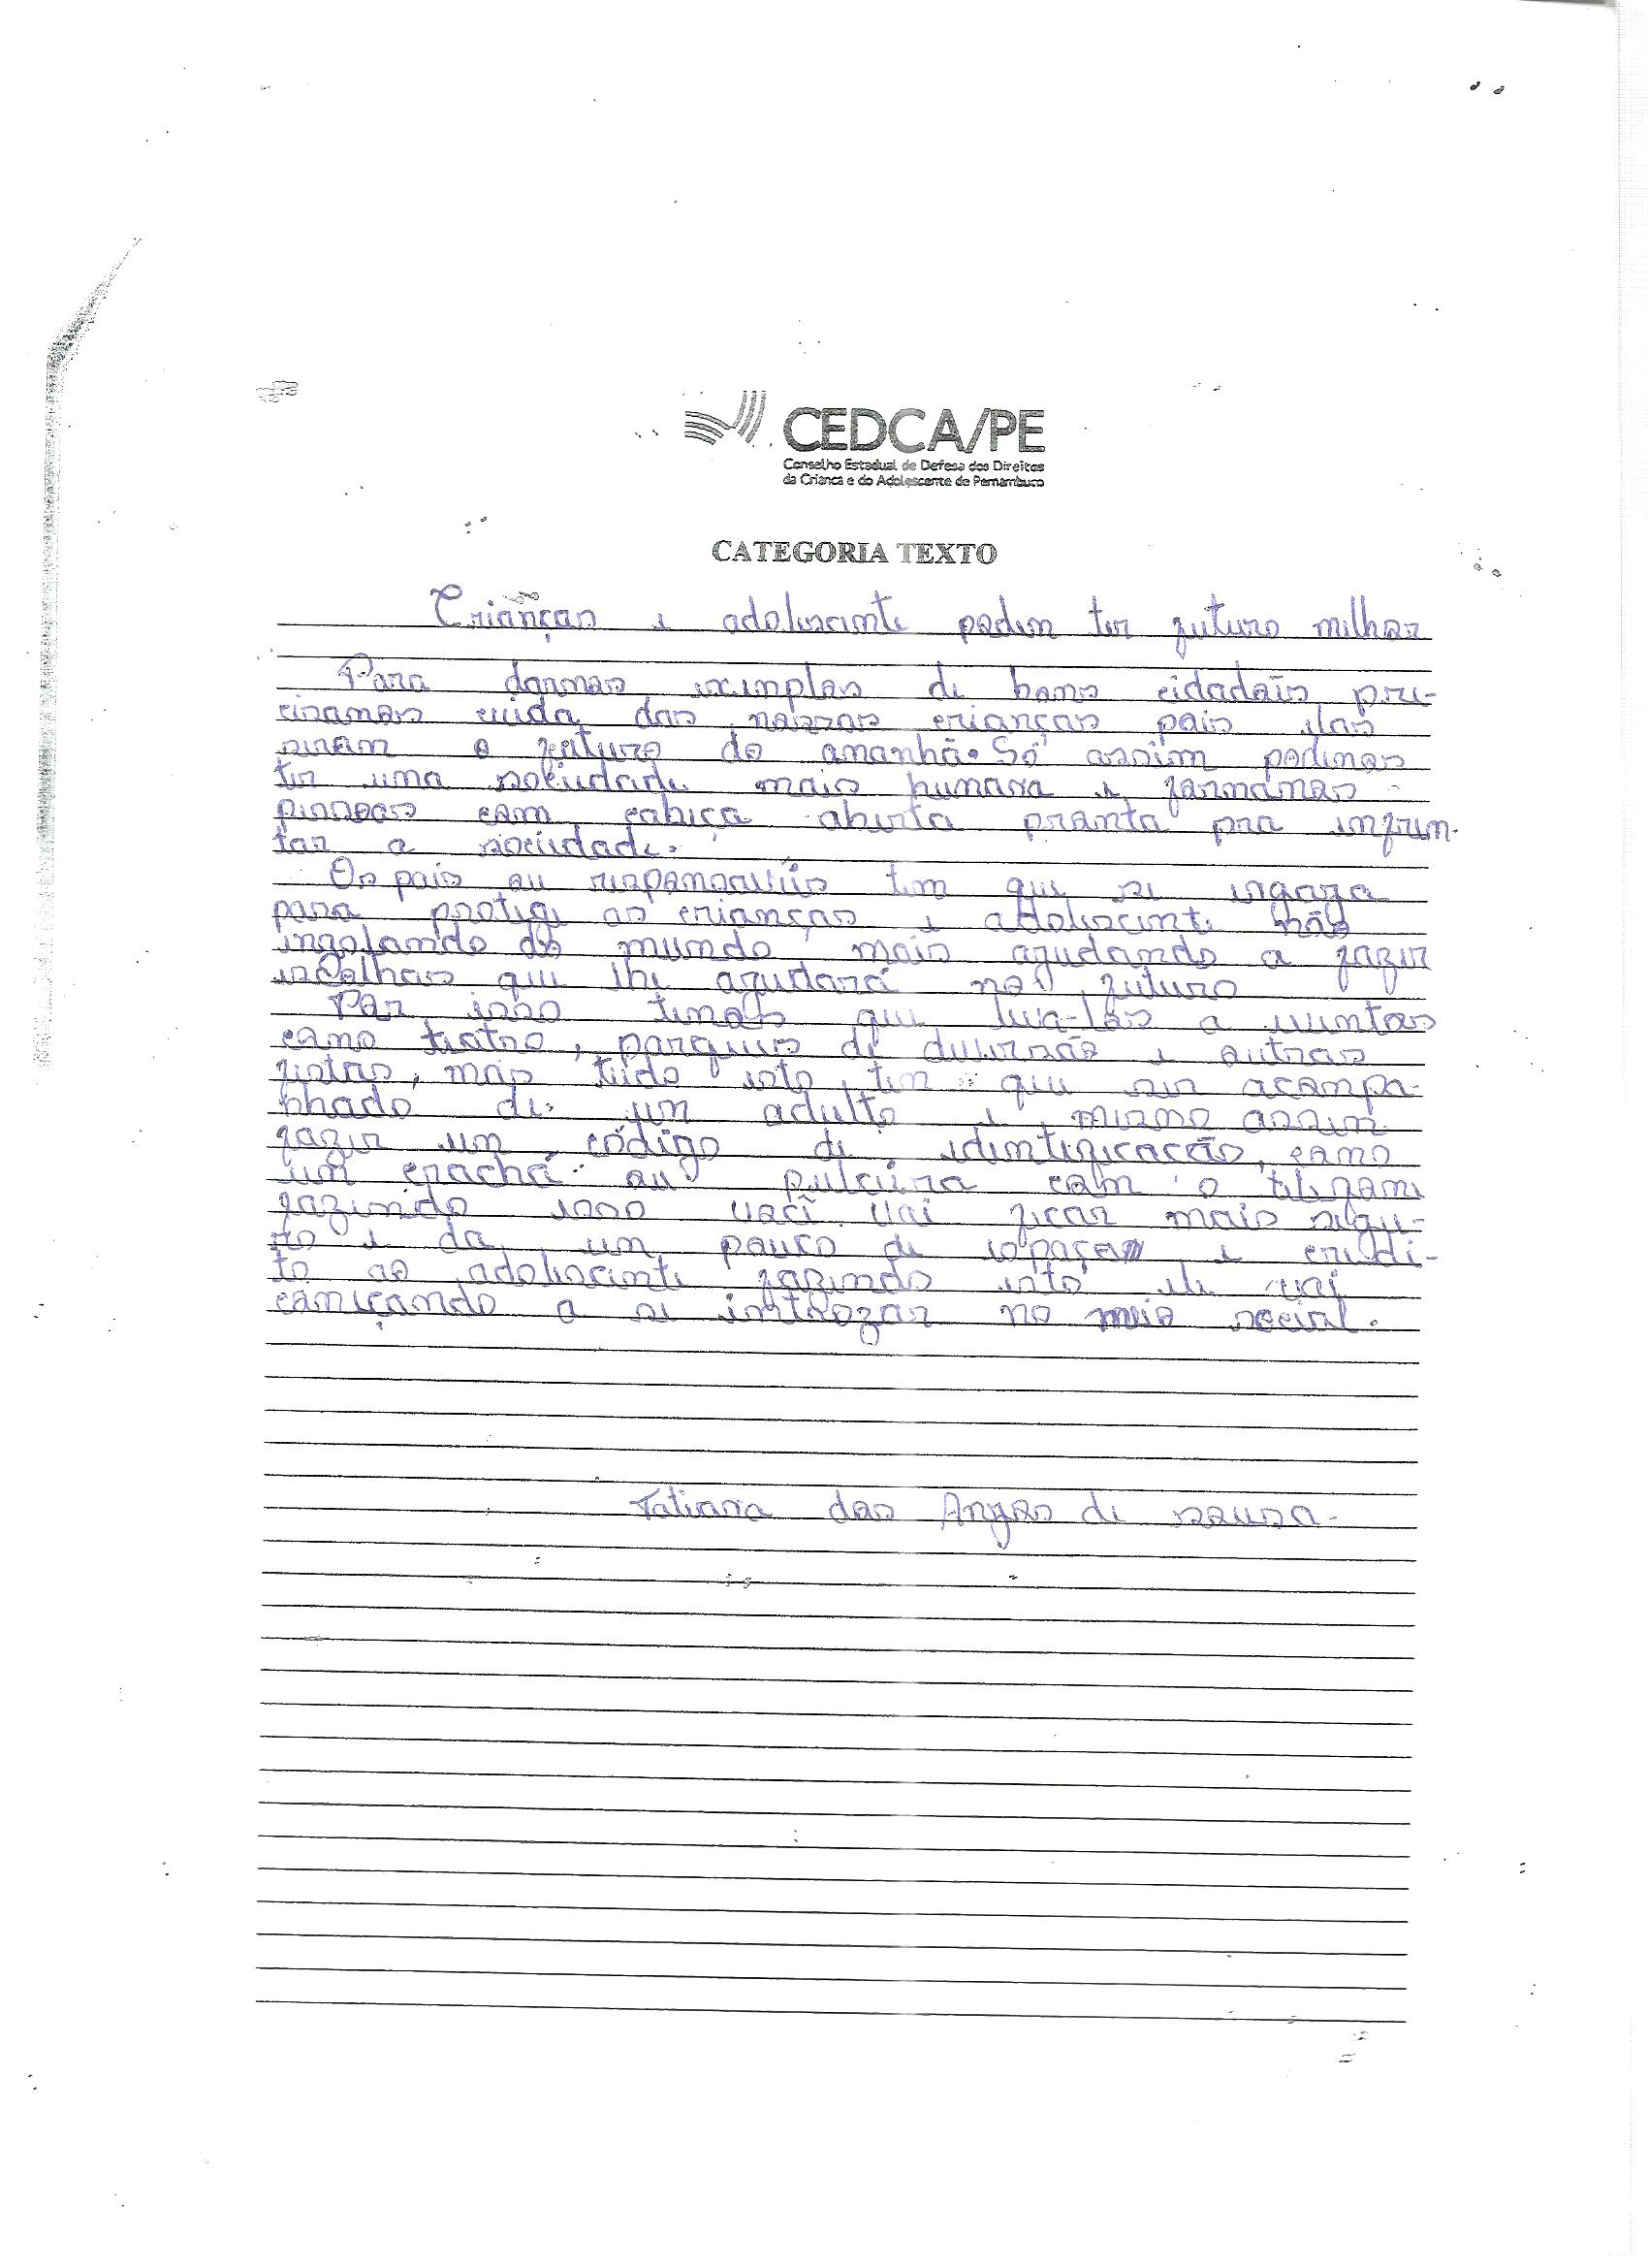 CEDCA/PE
Conselho Estadual de Defesa dos Direitos
da Criança e do Adolescente de Pernambuco
CATEGORIA TEXTO
Crianças e adolescente podem ter futuro melhor
Para darmos exemplos de bons cidadãis, pre-
cisamos cuida das nossas crianças pois elas
seram o futuro do amanhã. Só assim podemos
ter uma sociedade mais humana e formamos
pessoas com cabeça aberta pronta pra enfren-
tar a sociedade.
Os pais ou responsavéis tem que se engaza
para protege as crianças e adolescente não
inzolando do mundo mais ajudando a fazer
escolhas que lhe ajudará no futuro
Por isso temos que leva-los a eventos
como teatro, parques de diversão e outras
festas, mas tudo isto tem que ser acompa-
nhado de um adulto e mesmo assim
fazer um código de identificacção, como
um crachá ou pulceira com o telefone
fazendo isso você vai ficar mais segu-
ro e da um pouco de espaço e credi-
to ao adolescente fazendo isto ele vai
começando a se introzar no meio social.
Tatiana dos Anjos de souza-